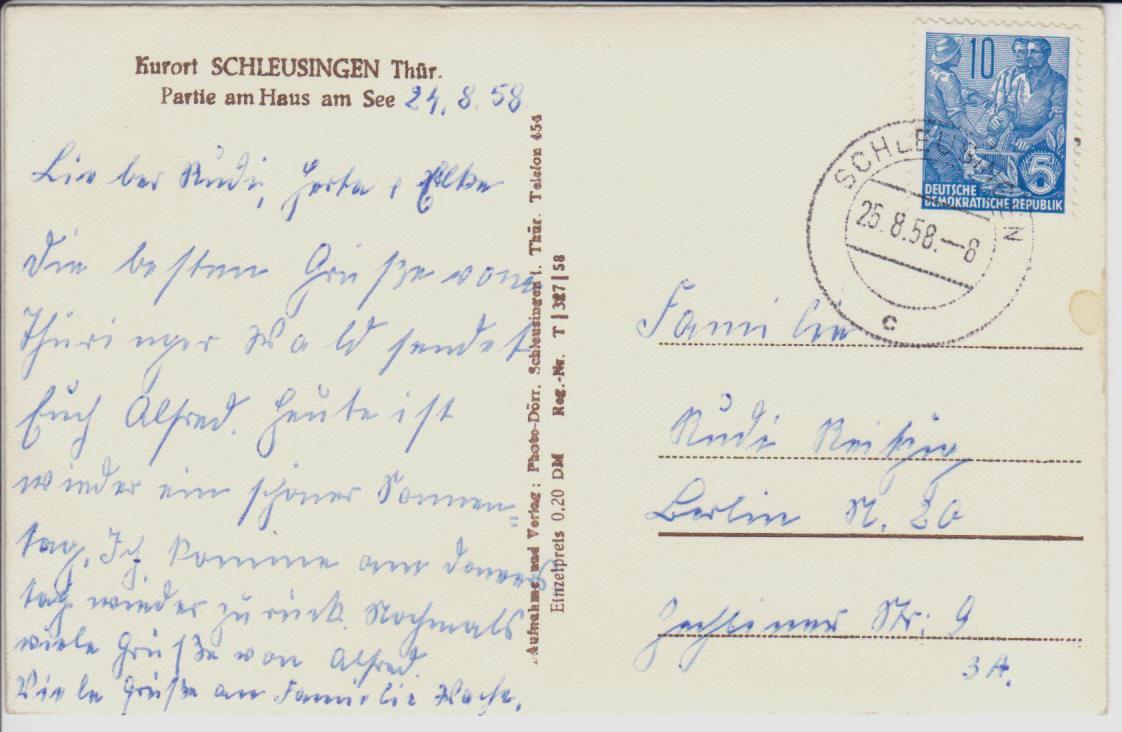 Kurort SCHLEUSINGEN Thür.
Partie am Haus am See 24. 8. 58
Lieber Rudi, Herta & Elke
Die besten Grüße vom
Thüringer Wald sendet
Euch Alfred. Heute ist
wieder ein schöner Sonnen=
tag. Ich komme am Donners
tag wieder zurück. Nochmals
viele Grüße von Alfred.
Viele Grüße an Familie
Aufnahme und Verlag: Photo-Dörr, Schleusingen i. Thür. Telefon 454
Einzelpreis 0,20 DM Reg.-Nr. T|387|58
10
5
DEUTSCHE
DEMOKRATISCHE REPUBLIK
SCHLEUSINGEN
25.8.58.-8
c
Familie
Rudi
Berlin N. 20
Zechliner Str. 9
3A.